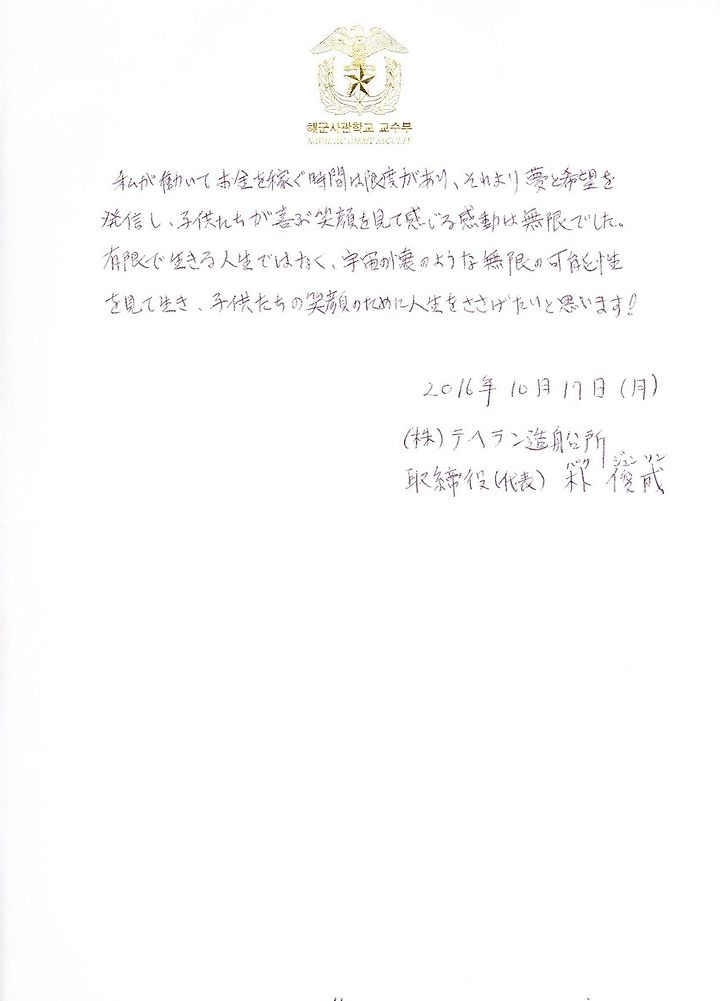 해군사관학교 교수부
NAVAL ACADEMY FACULTY
私が働いてお金を稼ぐ時間は限度があり、それより夢と希望を
発信し、子供たちが喜ぶ笑顔を見て感じる感動は無限でした。
有限で生きる人生ではなく、宇宙の懐のような無限の可能性
を見て生き、子供たちの笑顔のために人生をささげたいと思います!
2016年10月17日(月)
(株)テヘラン造船所
パク ジュン ソン
取締役(代表) 朴 俊成